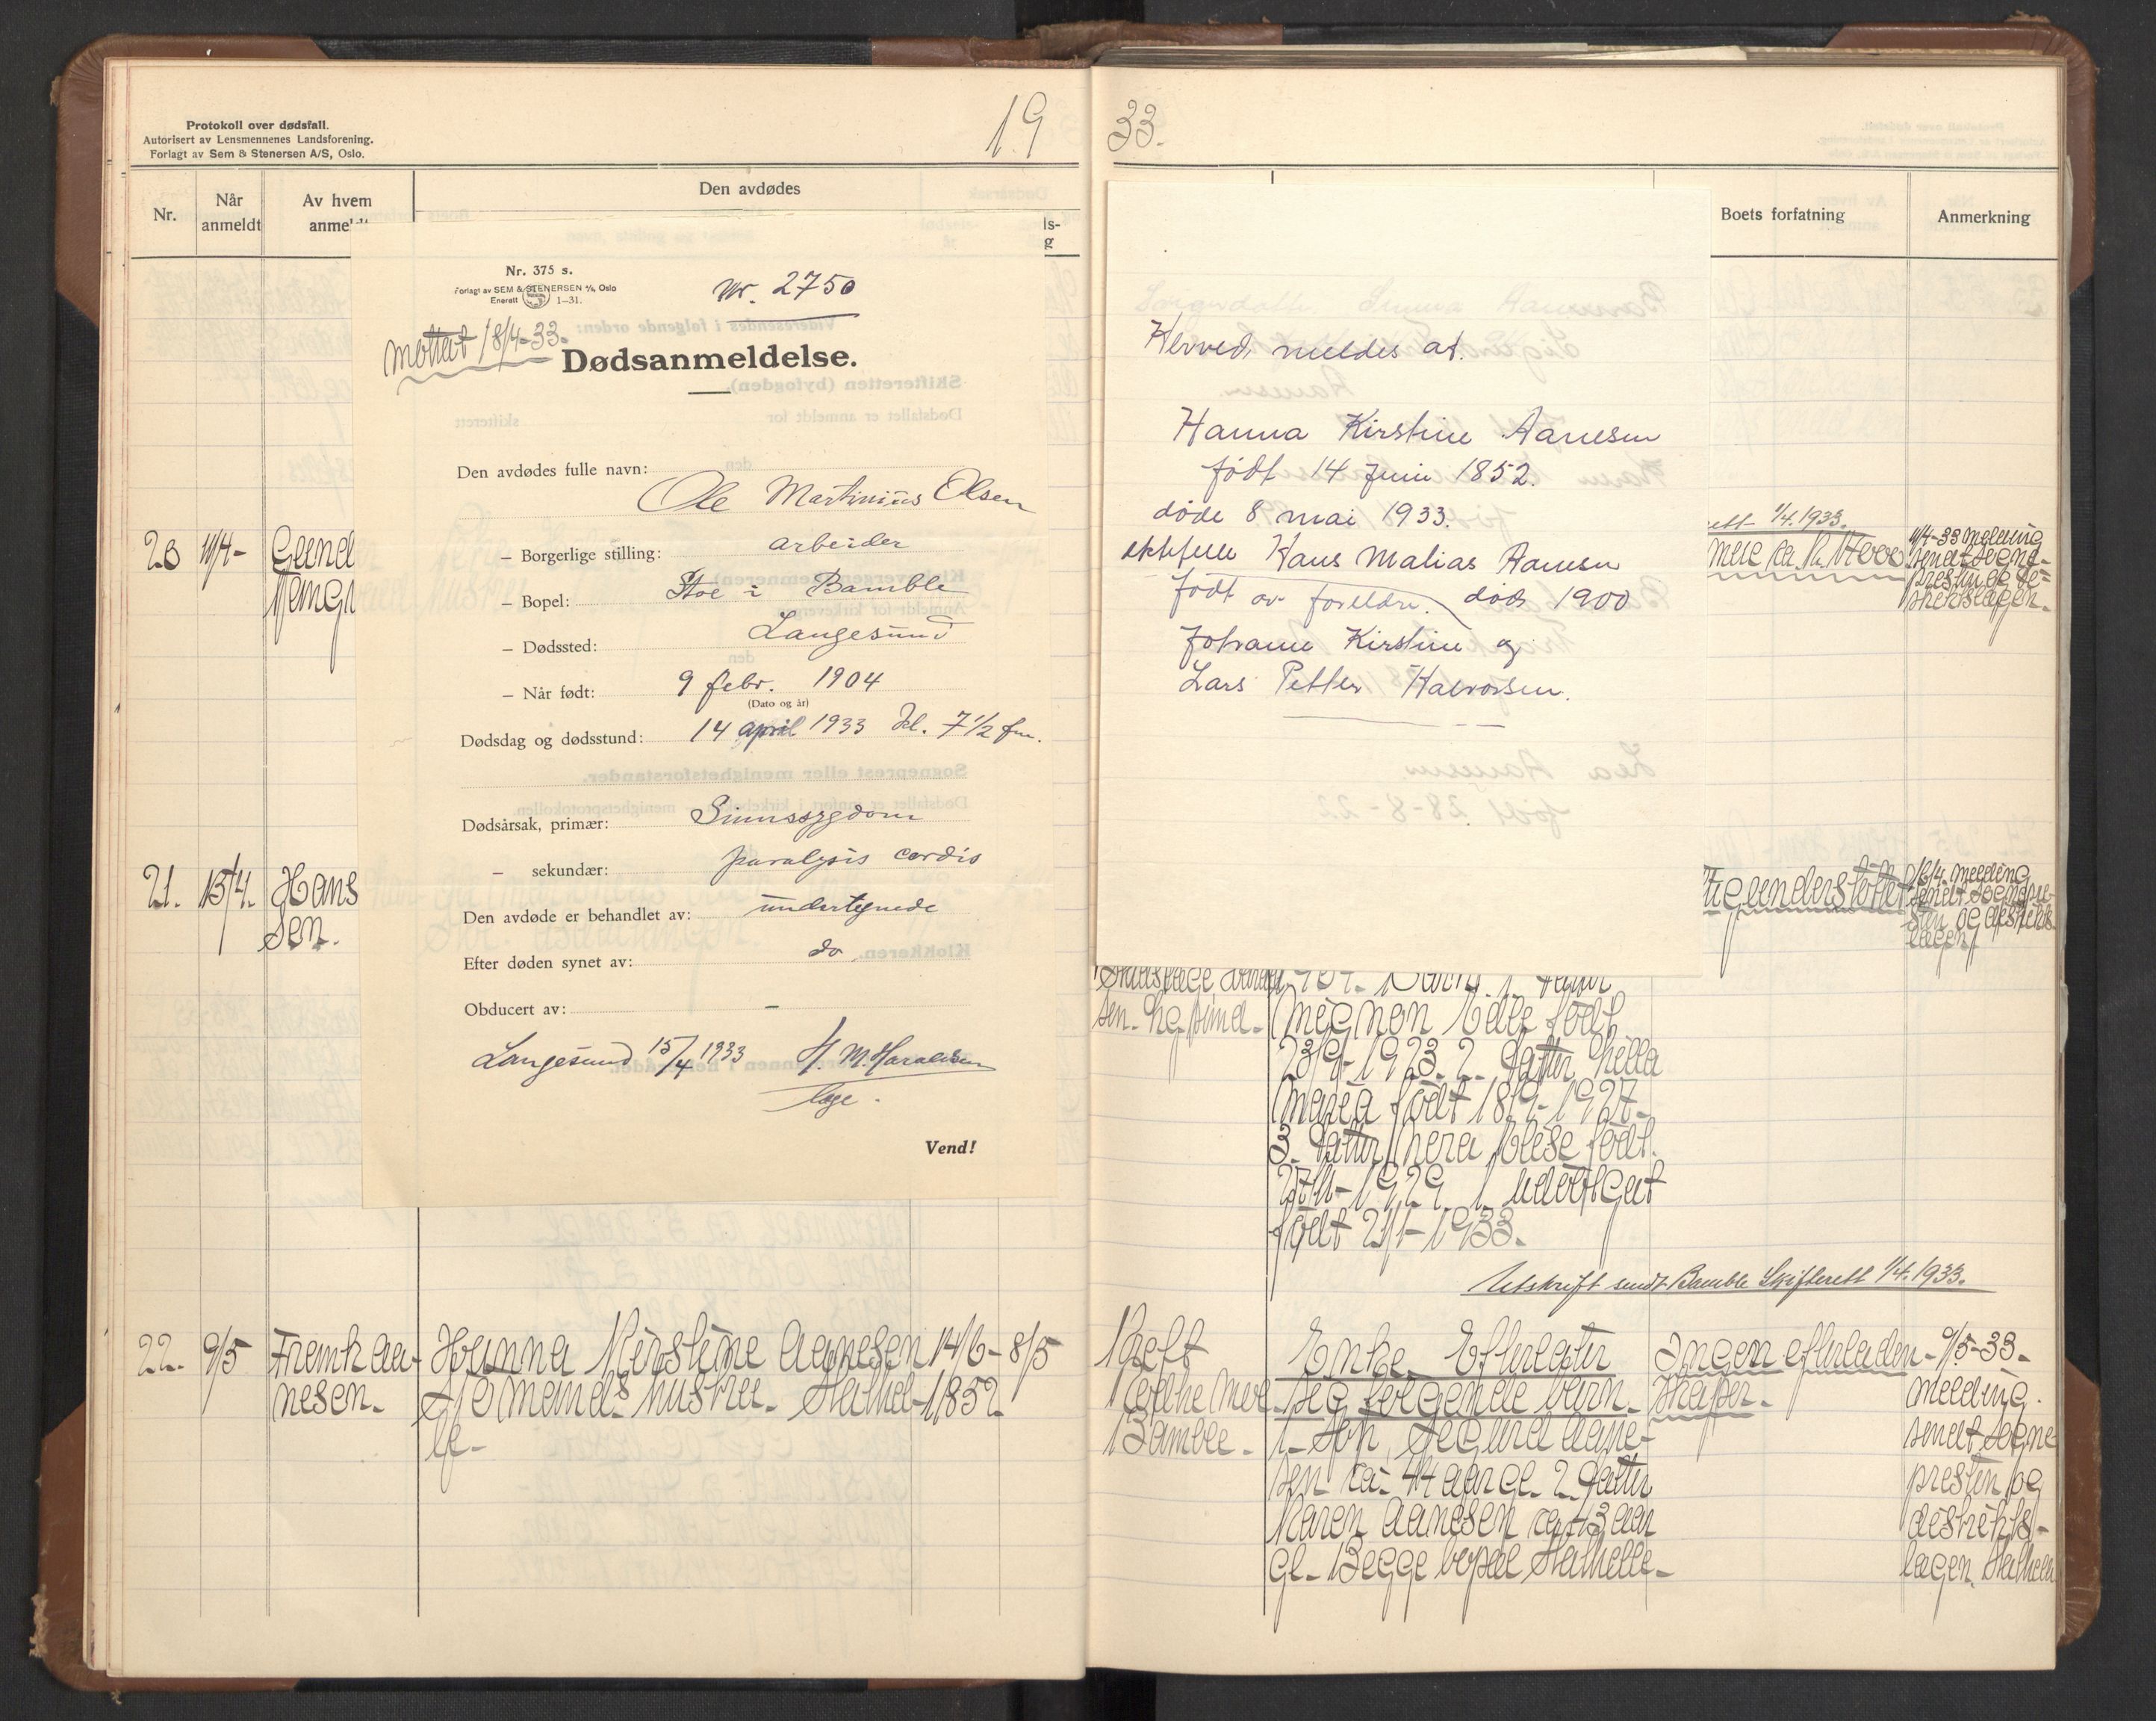 Protokoll over dødsfall.
Autorisert av Lensmennenes Landsforening.
Forlagt av Sem & Stenersen A/S, Oslo.
19
Nr.
Når anmeldt
Av hvem
Den avdødes
20 11/4-
21. 15/4. Hans
sen.
Nr. 375 s.
Forlagt av SEM & STENERSEN A/S, Oslo
Enerett 1-31.
Nr. 2750
Mottat 18/4-33.
Dødsanmeldelse.
Den avdødes fulle navn:
Ole Martinius Olsen
– Borgerlige stilling: arbeider
– Bopel: Stoe i Bamble
– Dødssted: Langesund
– Når født: 9 febr. 1904
(Dato og år)
Dødsdag og dødsstund: 14 april 1933 kl. 7 1/2 fm.
Dødsårsak, primær: Sinnssygdom
– sekundær: paralysis cordis
Den avdøde er behandlet av: undertegnede
Efter døden synet av: do
Obducert av: –
Langesund 15/4 1933 H. M. Haraldsen
læge.
Vend!
22. 9/5 Fremk Aa- Hanna Kirstine Aanesen 14/6- 8/5
nesen. hustru. Stathel- 1852
le-
33.
Boets forfatning
Anmerkning
Herved meldes at.
Hanna Kirstine Aanesen
født 14 Juni 1852.
døde 8 mai 1933.
ektefelle Hans Malias Aanesen
født av foreldre. død 1900
Johanne Kirstine og
Lars Petter Halvorsen.
1/4. 1933.
11/4-33 melding
sendt sogne-
presten og di-
striktslægen.
melding
sendt sognepre-
sten og distrikts-
lægen
født
23/9-1923. 2. datter Hella
Maria født 18/9-1927-
3. datter født
1929. 1 udøpt gut
født 21/1-1933.
Utskrift sendt Bamble Skifterett 1/4. 1933.
Enke. Efterlater
sig følgende barn.
1. søn Sigurd Aane-
sen ca. 44 aar gl. 2. datter
Karen Aanesen ca 43 aar
gl. Begge bopæl Stathelle-
Bamble.
Ingen efterladen-
skaper.
9/5-33.
melding
sendt sogne
presten og
distrikts-
lægen. Stathelle